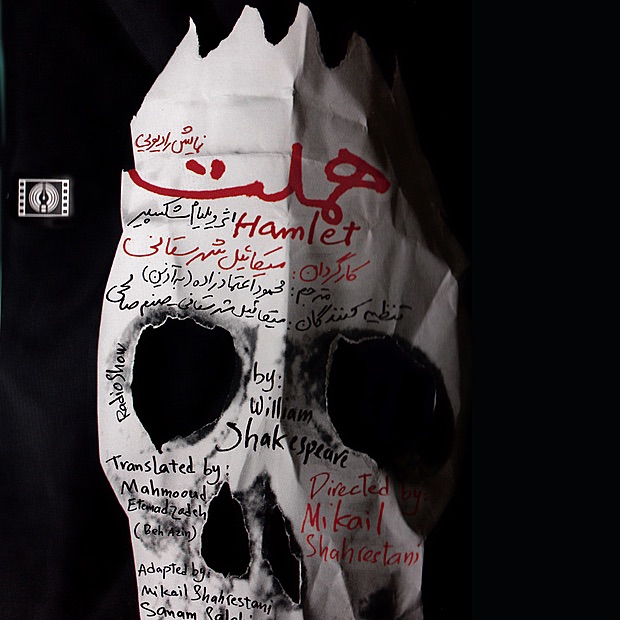 نمایش رادیویی
هملت
اثر ویلیام شکسپیر
Hamlet
کارگردان: میکائیل شهرستانی
مترجم: محمود اعتمادزاده (به آذین)
تنظیم کنندگان: میکائیل شهرستانی - صنم صالحی
Radio Show
by:
William
Shakespeare
Translated by:
Mahmooud
Etemadzadeh
(Beh Azin)
Adapted by:
Mikail Shahrestani
Sanam Salehi
Directed by:
Mikail
Shahrestani